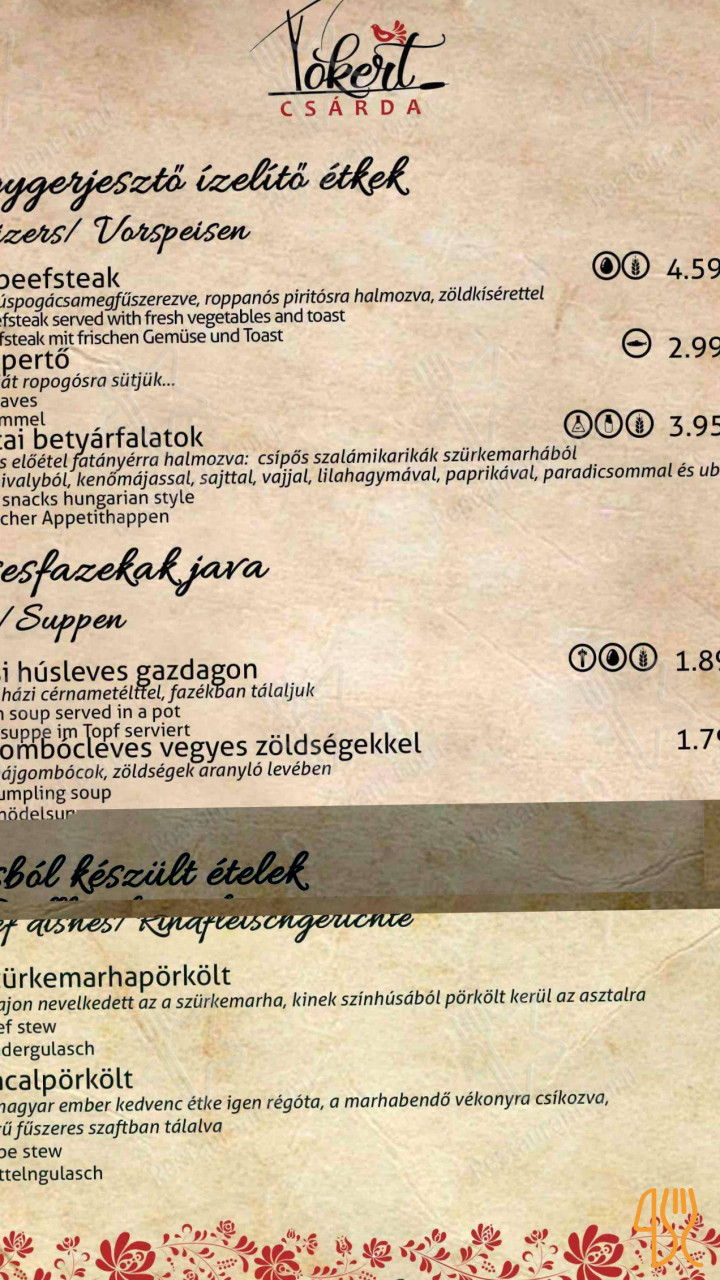 Tókert
CSÁRDA
nygerjesztő ízelítő étkek
izers/ Vorspeisen
beefsteak 4.59
úspogácsamegfűszerezve, roppanós piritósra halmozva, zöldkisérettel
efsteak served with fresh vegetables and toast
fsteak mit frischen Gemüse und Toast
pertő 2.99
át ropogósra sütjük...
aves
mmel
tai betyárfalatok 3.95
s előétel fatányérra halmozva: csípős szalámikarikák szürkemarhából
ivalyból, kenőmájassal, sajttal, vajjal, lilahagymával, paprikával, paradicsommal és ub
snacks hungarian style
cher Appetithappen
esfazekak java
/ Suppen
si húsleves gazdagon 1.89
házi cérnametélttel, fazékban tálaljuk
n soup served in a pot
suppe im Topf serviert
ombócleves vegyes zöldségekkel 1.79
ájgombócok, zöldségek aranyló levében
umpling soup
nödelsup
sból készült ételek
ef dishes/ Rindfleischgerichte
ürkemarhapörkölt
ajon nevelkedett az a szürkemarha, kinek színhúsából pörkölt kerül az asztalra
ef stew
dergulasch
acalpörkölt
magyar ember kedvenc étke igen régóta, a marhabendő vékonyra csíkozva,
ű fűszeres szaftban tálalva
pe stew
ttelngulasch